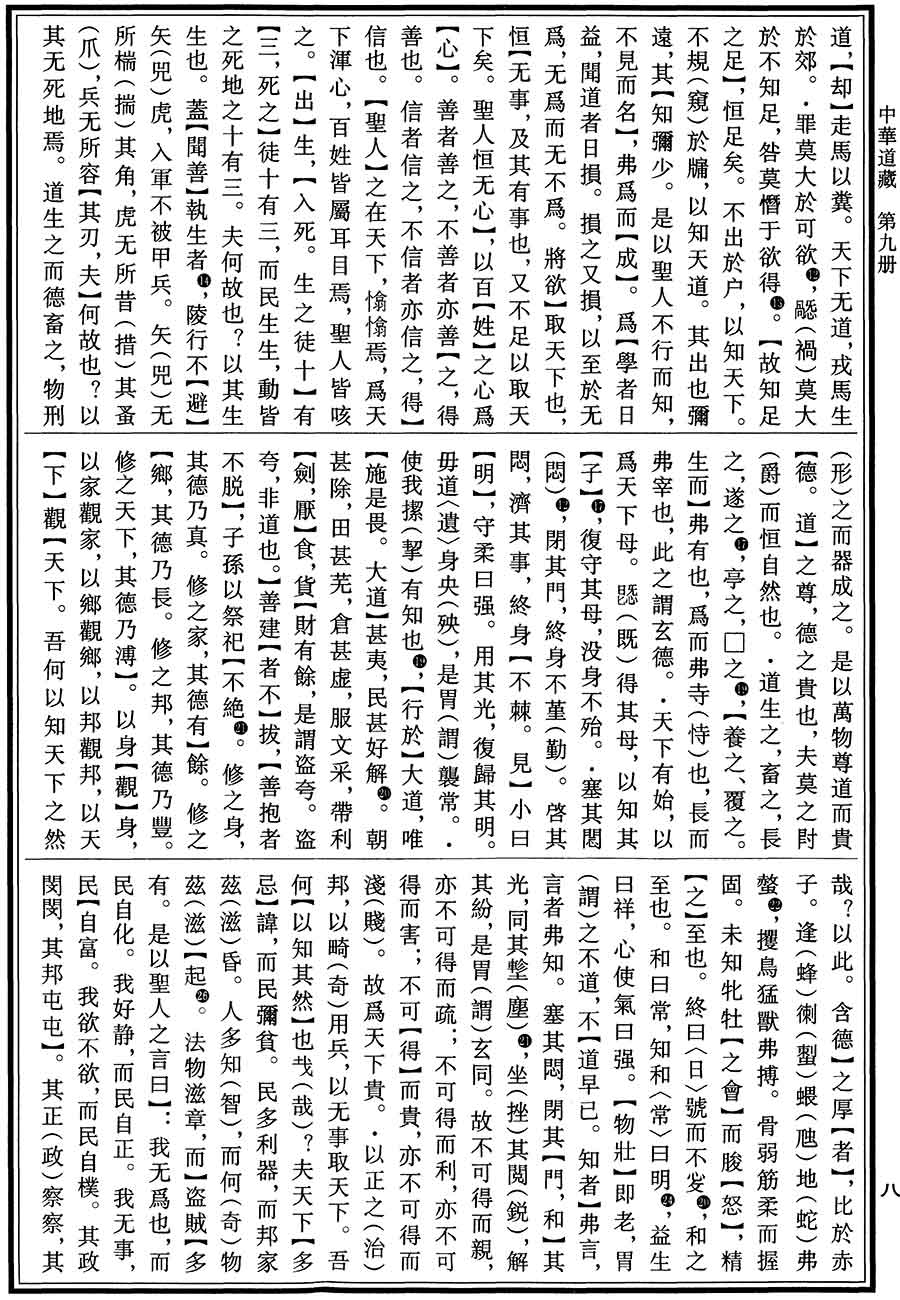 中華道藏 第九册
道，【却】走馬以糞。天下无道，戎馬生
於郊。·罪莫大於可欲⓬，（禍）莫大
於不知足，咎莫憯于欲得⓭。【故知足
之足】，恒足矣。不出於户，以知天下。
不規（窺）於牖，以知天道。其出也彌
遠，其【知彌少。是以聖人不行而知，
不見而名】，弗爲而【成】。爲【學者日
益，聞道者日損。損之又損，以至於无
爲，无爲而无不爲。將欲】取天下也，
恒【无事，及其有事也，又不足以取天
下矣。聖人恒无心】，以百【姓】之心爲
【心】。善者善之，不善者亦善【之，得
善也。信者信之，不信者亦信之，得】
信也。【聖人】之在天下，愉愉焉，爲天
下渾心，百姓皆屬耳目焉，聖人皆咳
之。【出】生，【入死。生之徒十】有
【三，死之】徒十有三，而民生生，動皆
之死地之十有三。夫何故也？以其生
生也。蓋【聞善】執生者⓮，陵行不【避】
矢（兕）虎，入軍不被甲兵。矢（兕）无
所椯（揣）其角，虎无所昔（措）其蚤
（爪），兵无所容【其刃，夫】何故也？以
其无死地焉。道生之而德畜之，物刑
（形）之而器成之。是以萬物尊道而貴
【德。道】之尊，德之貴也，夫莫之𣂋
（爵）而恒自然也。·道生之，畜之，長
之，遂之⓱，亭之，□之⓳，【養之、覆之。
生而】弗有也，爲而弗寺（恃）也，長而
弗宰也，此之謂玄德。·天下有始，以
爲天下母。（既）得其母，以知其
【子】⓱，復守其母，没身不殆。·塞其悶
（悶）⓬，閉其門，終身不堇（勤）。啓其
悶，濟其事，終身【不棘。見】小曰
【明】，守柔曰强。用其光，復歸其明。
毋道〈遺〉身央（殃），是胃（謂）襲常。·
使我㨼（挈）有知也⓳，【行於】大道，唯
【施是畏。大道】甚夷，民甚好解⓴。朝
甚除，田甚芜，倉甚虚，服文采，帶利
【劍，厭】食，貨【財有餘，是謂盗夸。盗
夸，非道也。】善建【者不】拔，【善抱者
不脱】，子孫以祭祀【不絶㉑。修之身，
其德乃真。修之家，其德有】餘。修之
【鄉，其德乃長。修之邦，其德乃豐。
修之天下，其德乃溥】。以身【觀】身，
以家觀家，以鄉觀鄉，以邦觀邦，以天
【下】觀【天下。吾何以知天下之然
哉？以此。含德】之厚【者】，比於赤
子。逢（蜂）㓨（蜇）蝟（虺）地（蛇）弗
螫㉒，攫鳥猛獸弗搏。骨弱筋柔而握
固。未知牝牡【之會】而朘【怒】，精
【之】至也。終曰〈日〉號而不㕱⓴，和之
至也。和曰常，知和〈常〉曰明㉔，益生
曰祥，心使氣曰强。【物壯】即老，胃
（謂）之不道，不【道早已。知者】弗言，
言者弗知。塞其悶，閉其【門，和】其
光，同其塹（塵）㉑，坐（挫）其閲（鋭），解
其紛，是胃（謂）玄同。故不可得而親，
亦不可得而疏；不可得而利，亦不可
得而害；不可【得】而貴，亦不可得而
淺（賤）。故爲天下貴。·以正之（治）
邦，以畸（奇）用兵，以无事取天下。吾
何【以知其然】也㦲（哉）？夫天下【多
忌】諱，而民彌貧。民多利器，而邦家
兹（滋）昏。人多知（智），而何（奇）物
兹（滋）【起㉖。法物滋章，而】盗賊【多
有。是以聖人之言曰】：我无爲也，而
民自化。我好静，而民自正。我无事，
民【自富。我欲不欲，而民自樸。其政
閔閔，其邦屯屯】。其正（政）察察，其
八